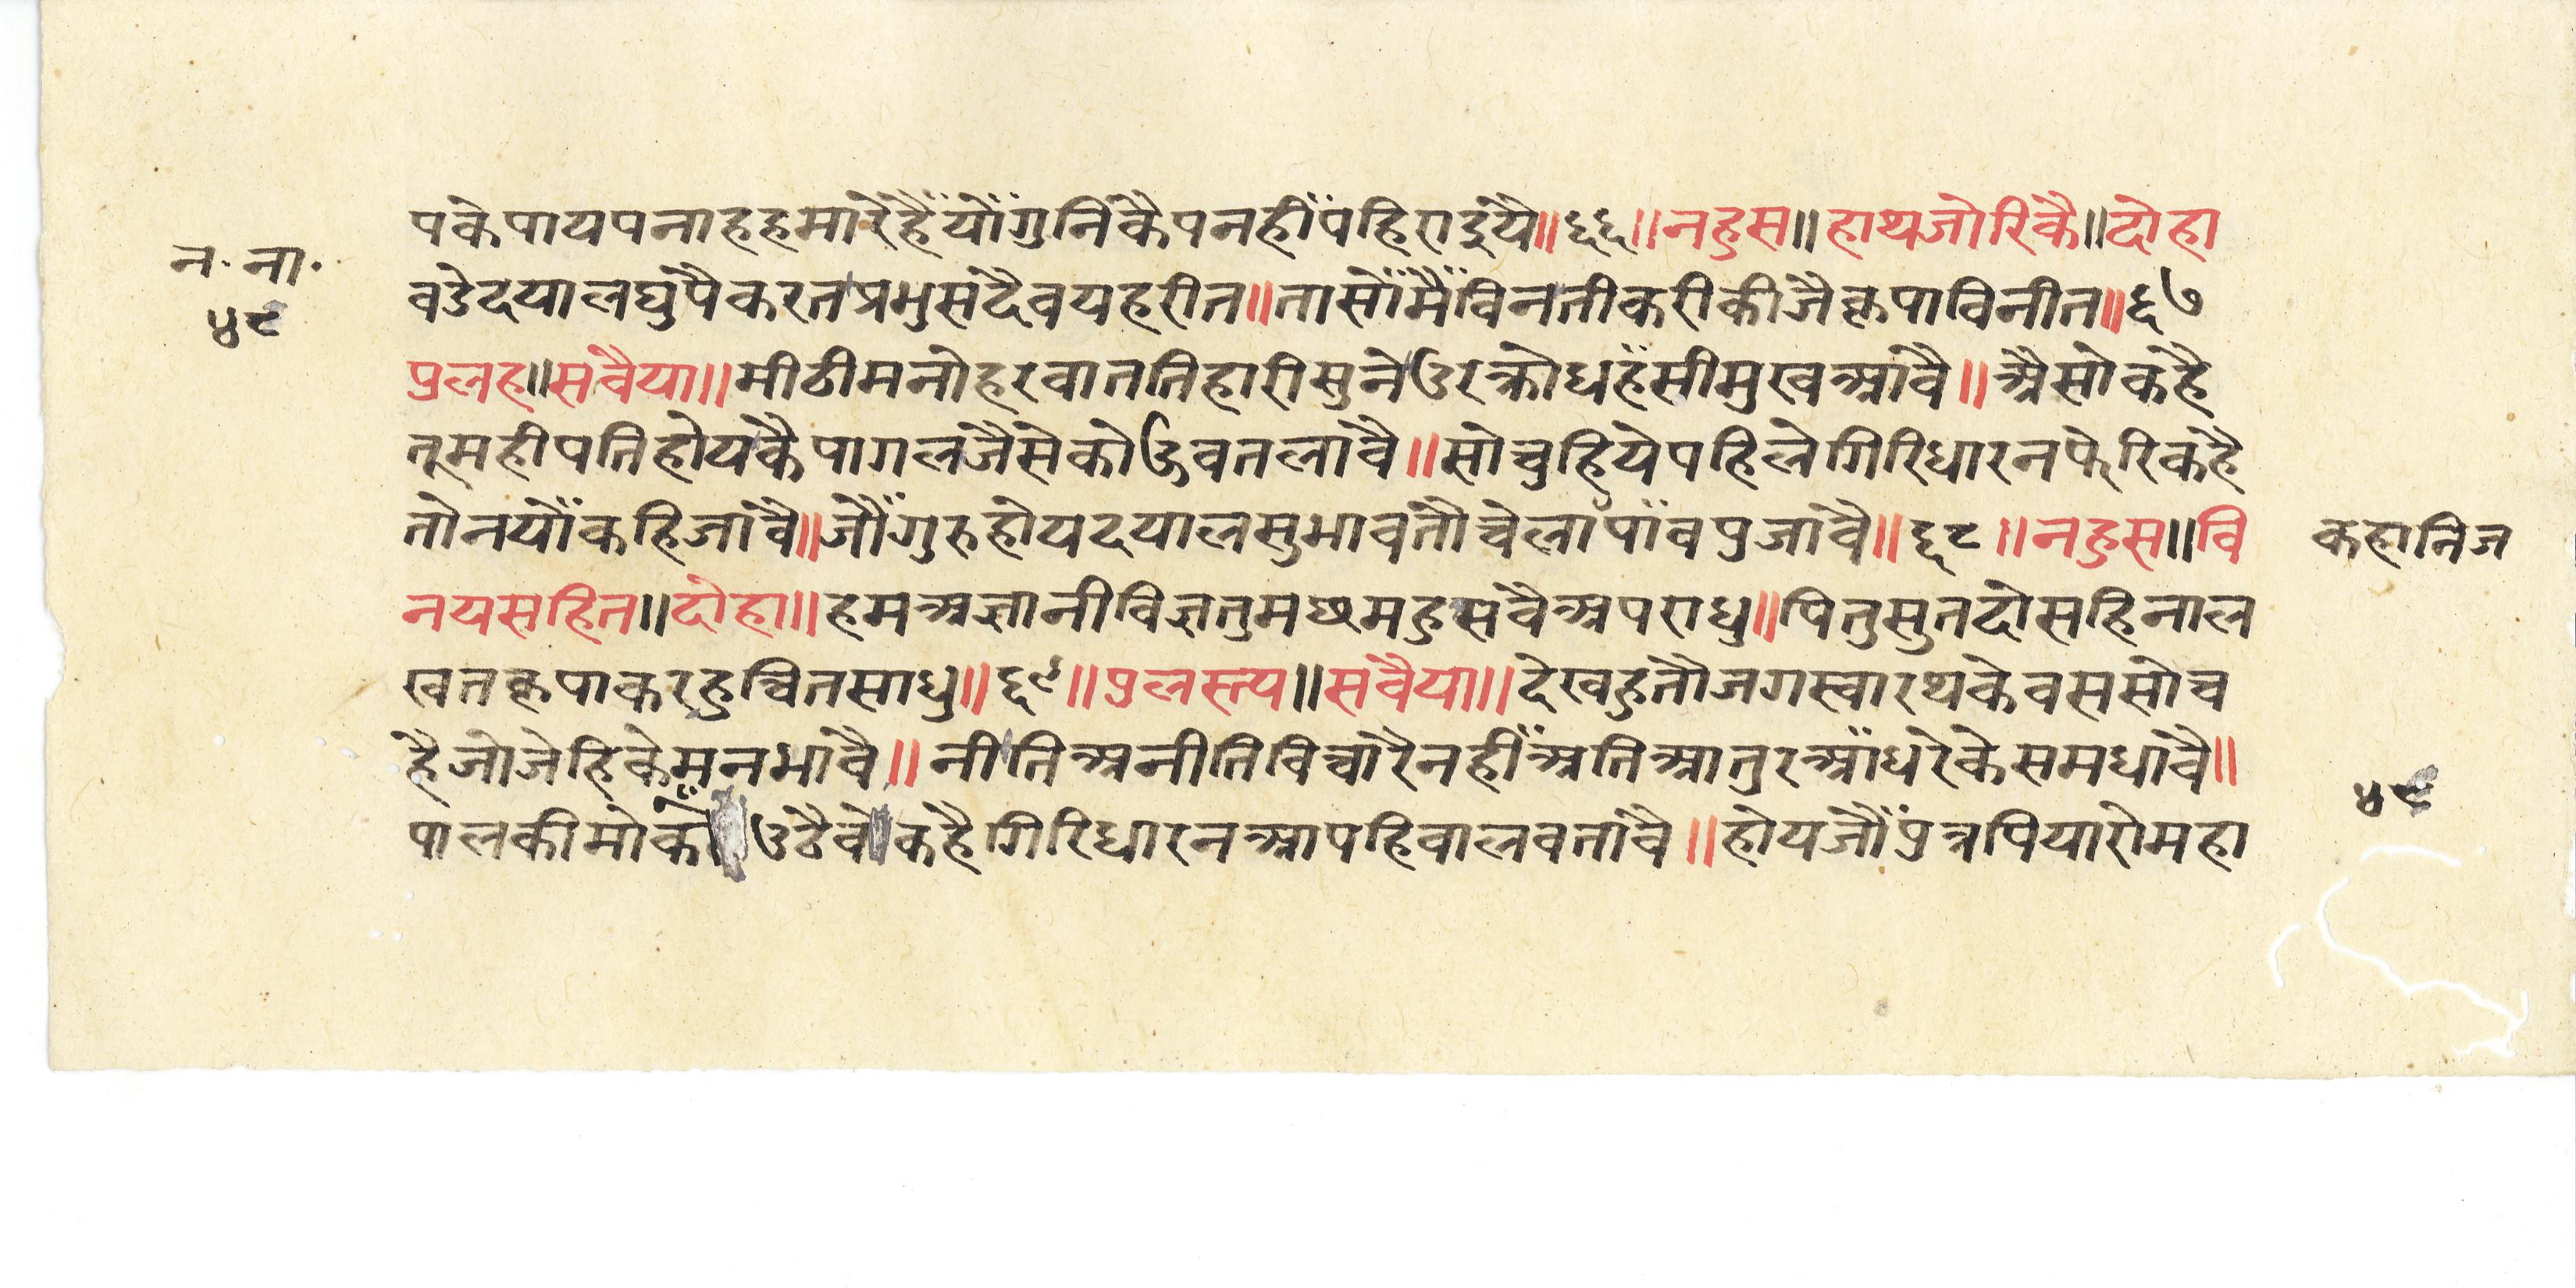 पकेपायपनाहहमारेहैँयोँगुनिकैपनहीँपहिराइये॥६६॥नहुस॥हाथजोरिकै॥दोहा
न॰ना॰
वडेदयालघुपैकरतप्रभुसदैवयहरीत॥तासोँमैँविनतीकरीकीजैकृपाविनीत॥६७
४९
प्रलह॥सवैया॥मीठीमनोहरवाततिहारीसुनेउरक्रोधहँसीमुखआवै॥अैसोकहै
तूमहीपतिहोयकैपागलजैसेकोऊवतलावै॥सोचुहियेपहिलेगिरिधारनफेरिकहै
तोनयोँकहिजावै॥जौँगुरुहोयदयालसुभावतौचेलापाँवपुजावै॥६८॥नहुस॥वि
कहानिज
नयसहित॥दोहा॥हमअज्ञानीविज्ञतुमछमहुसवैअपराधु॥पितुसुतदोसहिनाल
खतकृपाकरहुचितसाधु॥६९॥पुलस्त्य॥सवैया॥देखहुतौजगस्वारथकेवससोच
हैजोजेहिकेमनभावै॥नीतिअनीतिविचारैनहीँअतिआतुरआँधरेकेसमधावै॥
पालकीमोकोँउठैवेकहैगिरिधारनआपहिवालवतावै॥होयजौँपुत्रपियारोमहा
४९